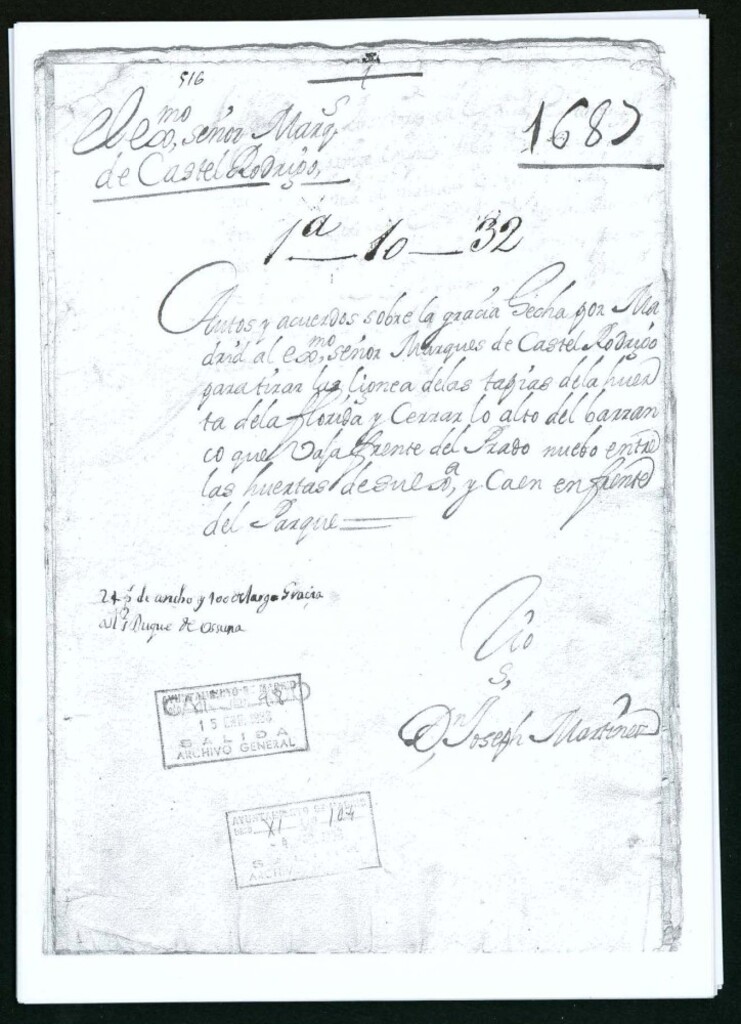 516
Exmo, señor Marqs
de Castel Rodrigo,
1687
1a — 10 — 32
Autos y acuerdos sobre la gracia hecha por Ma
drid al exmo, señor Marques de Castel Rodrigo
para tirar la lignea delas tapias dela huer
ta dela florida y Cerrar lo alto del barran
co que vaja frente del Prado nuebo entre
las huertas de su exa, y Caen enfrente
del Parque
de ancho y 100 de largo Gracia
al Sr Duque de Ossuna
Sno
S,
Dn Joseph Martinez
AYUNTAMIENTO DE MADRID
48
15 ENE.
SALIDA
ARCHIVO GENERAL
AYUNTAMIENTO DE MADRID
XI 104